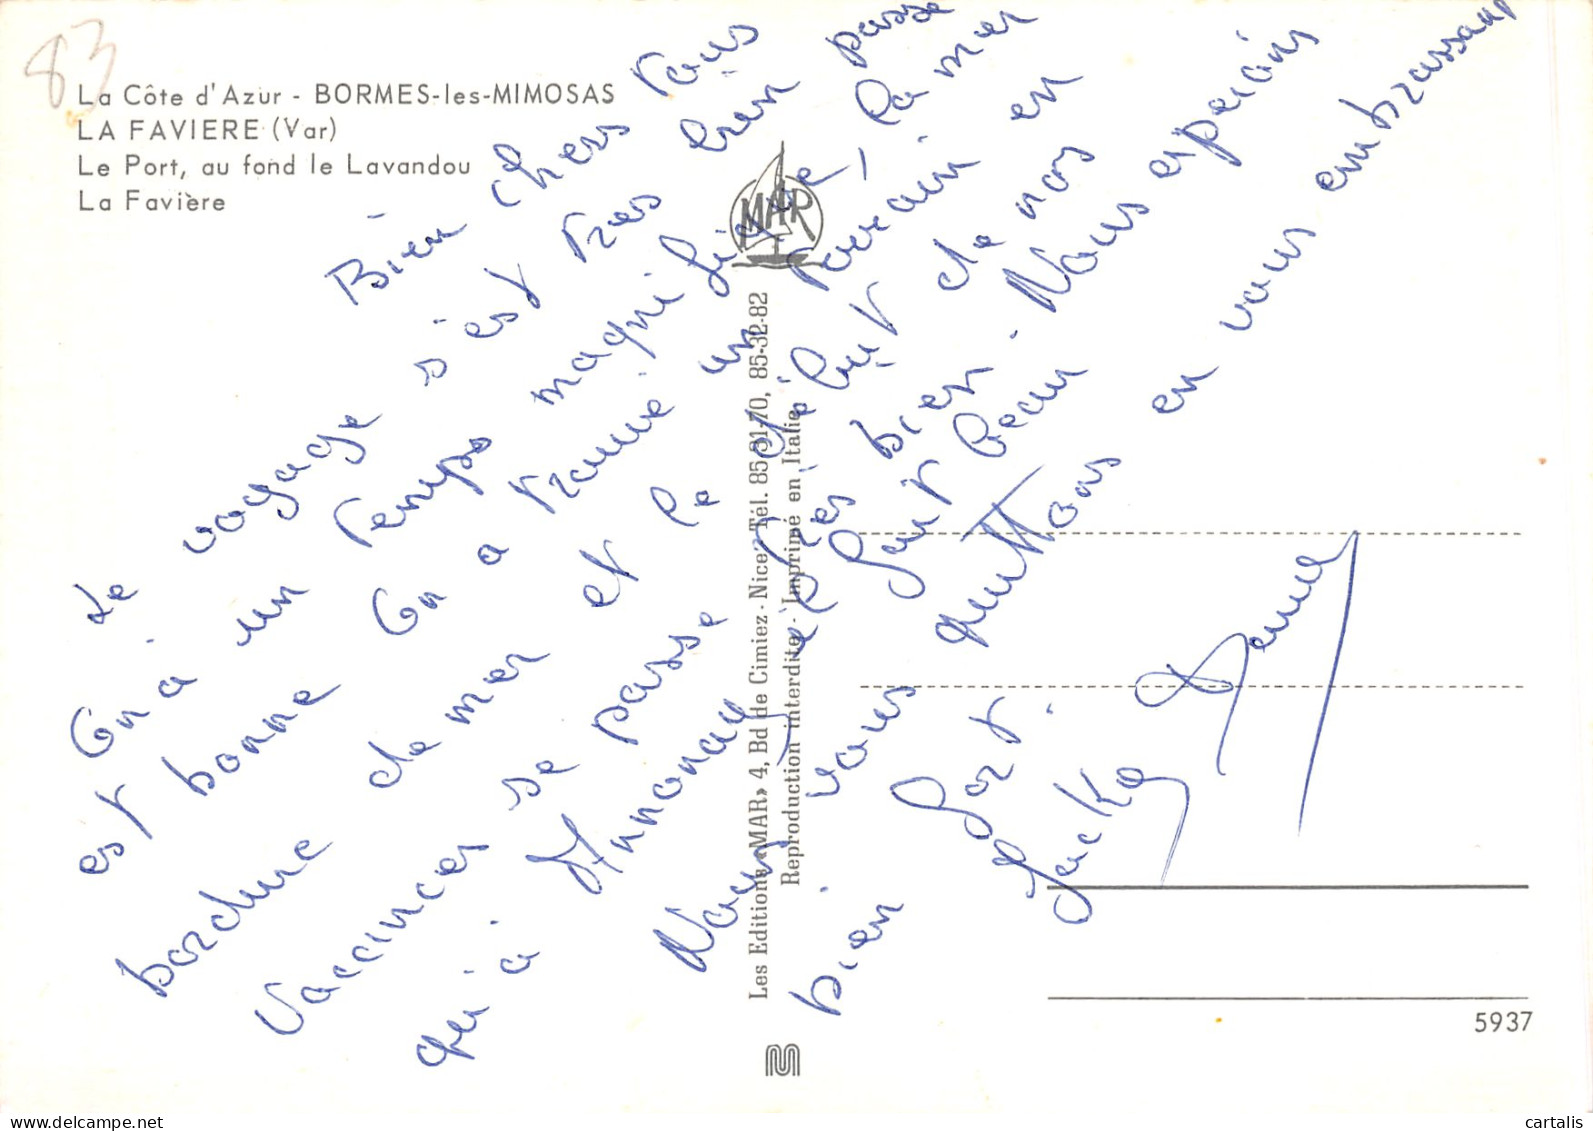 83
La Côte d'Azur - BORMES-les-MIMOSAS
LA FAVIERE (Var)
Le Port, au fond le Lavandou
La Favière
MAR
Bien chers vous
Le voyage s'est très bien passé
On a un temps magnifique, la mer
est bonne On a trouvé un terrain en
bordure de mer et le début de nos
vaccinces se passe très bien. Nous espérons
qui à Annonay le tout beau
Nous vous quittons en vous embrassant
bien fort.
Les Editions «MAR» 4, Bd de Cimiez - Nice - Tél. 85-31-70, 85-32-82
Reproduction interdite - Imprimé en Italie
5937
www.delcampe.net
cartalis